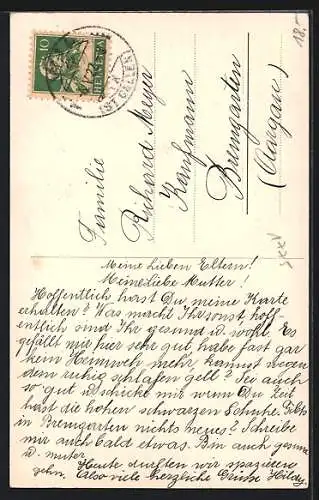 18.-
10
HELVETIA
(ST GALLEN)
Familie
Richard Meyer
Kaufmann
Bremgarten
(Aargau)
Meine lieben Eltern!
Meine liebe Mutter!
Hoffentlich hast Du meine Karte
erhalten? Was macht Ihr sonst hoff-
entlich sind Ihr gesund u. wohl. Es
gefällt mir hier sehr gut habe fast gar
kein Heimweh mehr, kannst wegen
dem ruhig schlafen gell? Sei auch
so gut u schicke mir wenn Du Zeit
hast die hohen schwarzen Schuhe. Gibts
in Bremgarten nichts neues? Schreibe
mir auch bald etwas. Bin auch gesund
u. munter.
Heute durften wir spazieren
gehn. Also viele herzliche Grüsse Hildy